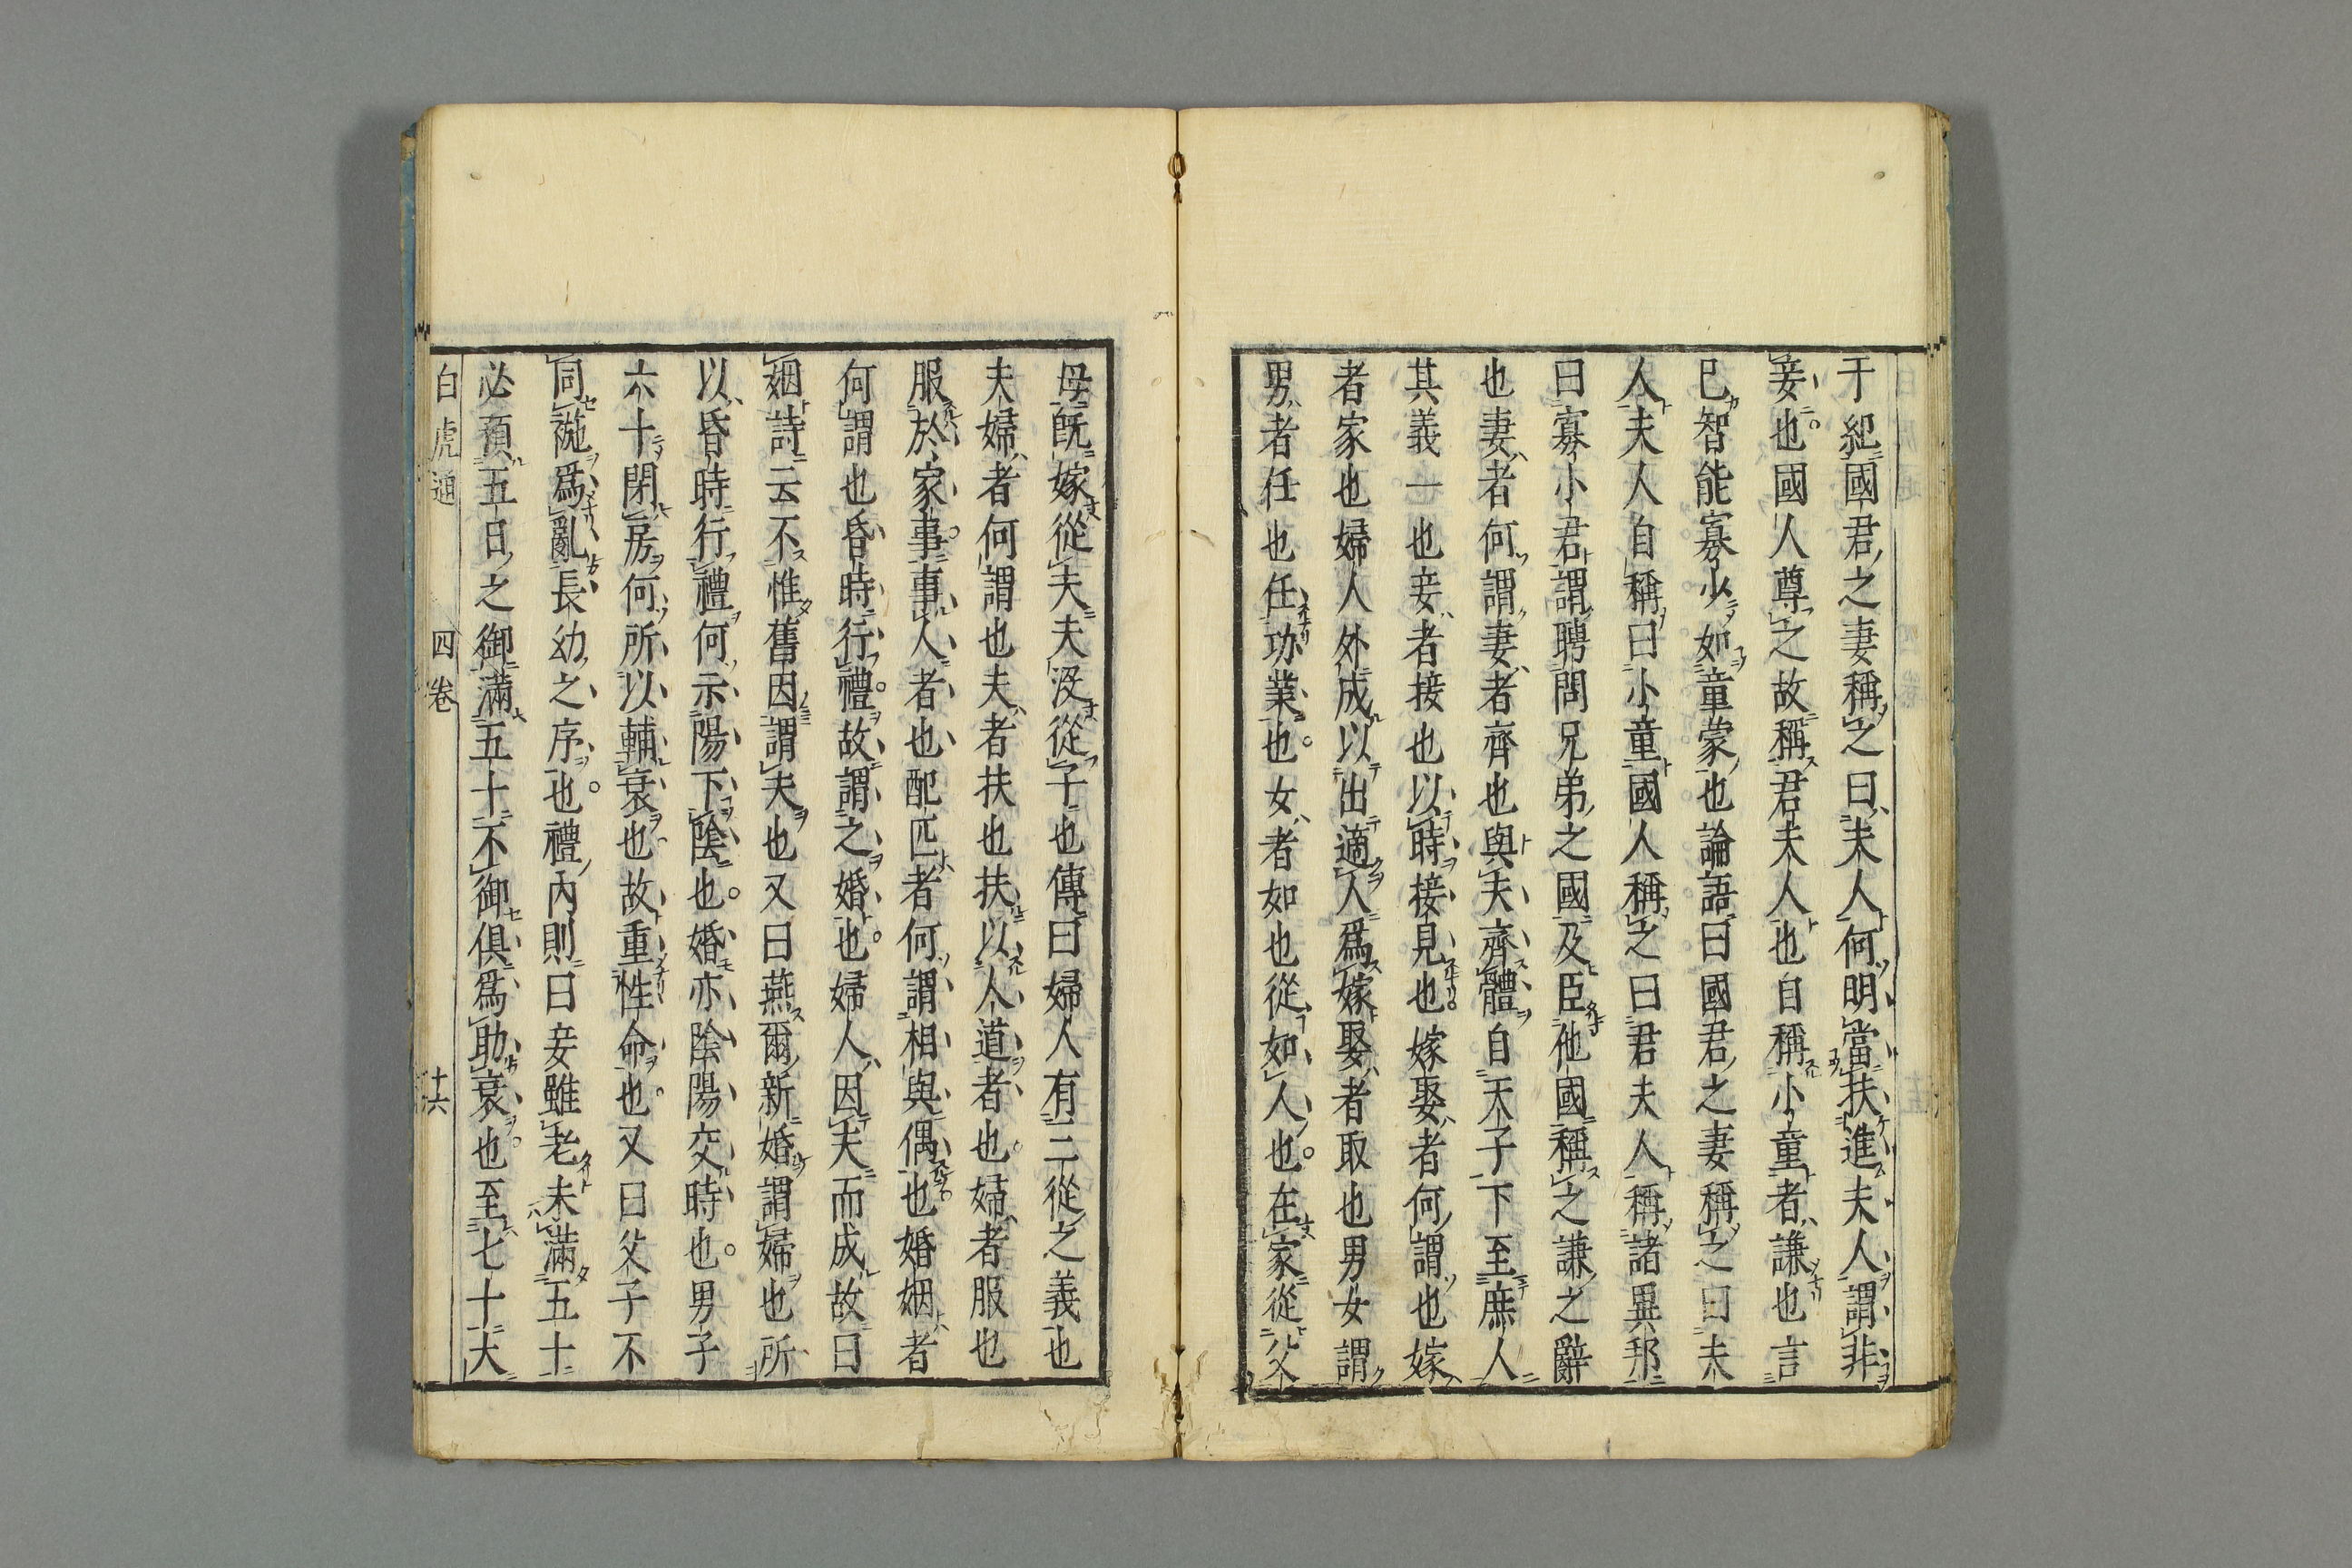 于紀國君之妻稱之曰夫人何明當扶進夫人謂非
妾也國人尊之故稱君夫人也自稱小童者謙也言
已智能寡少如童蒙也論語曰國君之妻稱之曰夫
人夫人自稱曰小童國人稱之曰君夫人稱諸異邦
曰寡小君謂聘問兄弟之國及臣他國稱之謙之辭
也妻者何謂妻者齊也與夫齊體自天子下至庶人
其義一也妾者接也以時接見也嫁娶者何謂也嫁
者家也婦人外成以出適人爲嫁娶者取也男女謂
男者任也任功業也女者如也從如人也在家從父
母既嫁從夫夫沒從子也傳曰婦人有三從之義也
夫婦者何謂也夫者扶也扶以人道者也婦者服也
服於家事事人者也配匹者何謂相與偶也婚姻者
何謂也昏時行禮故謂之婚也婦人因夫而成故曰
姻詩云不惟舊因謂夫也又曰燕爾新婚謂婦也所
以昏時行禮何示陽下陰也婚亦陰陽交時也男子
六十閉房何所以輔衰也故重性命也又曰父子不
同褷爲亂長幼之序也禮內則曰妾雖老未滿五十
必預五日之御滿五十不御俱爲助衰也至七十大
白虎通 四卷 十六